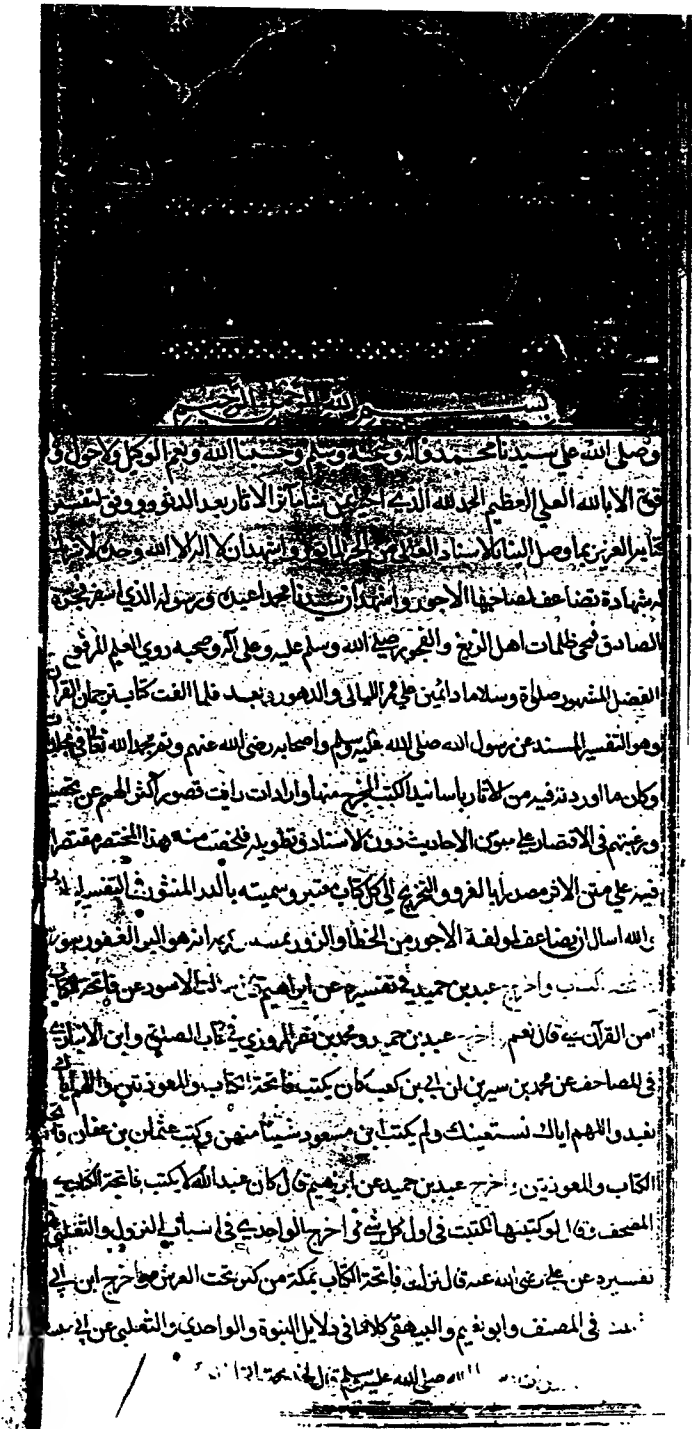 بسم الله الرحمن الرحيم
وصلى الله على سيدنا محمد واله وصحبه وسلم وحسبنا الله ونعم الوكيل ولا حول و
قوة الا بالله العلي العظيم الحمد لله الذي احيا بمن شا ماثر الاثار بعد الدثور ووفق لتفسير
كتابه العزيز بما وصل الينا بالاسناد العالي من الخبر الماثور واشهد ان لا اله الا الله وحده لا شريك
له شهادة تضاعف لصاحبها الاجور واشهد ان سيدنا محمدا عبده ورسوله الذي اسفر فجره
الصادق فمحى ظلمات اهل الزيغ والفجور صلى الله وسلم عليه وعلى آله وصحبه ذوي العلم المرفوع
الفضل المشهور صلواة وسلاما دائمين على ممر الليالي والدهور وبعد فلما الفت كتاب ترجمان القرآن
وهو التفسير المسند عن رسول الله صلى الله عليه وسلم واصحابه رضى الله عنهم وتم بحمد الله تعالى في مجلدات
وكان ما اوردته فيه من الاثار باسانيد الكتب المخرج منها وارادات رايت قصور اكثر الهمم عن تحصيله
ورغبتهم في الاقتصار على متون الاحاديث دون الاسناد وتطويله فلخصت منه هذا المختصر مقتصرا
فيه على متن الاثر مصدرا بالعزو والتخريج الى كل كتاب معتبر وسميته بالدر المنثور في التفسير
والله اسال ان يضاعف لمولفه الاجور من الخطا والزور بمنه انه هو البر الغفور سورة
واخرج عبد بن حميد في تفسيره عن ابراهيم قال سالت الاسود عن فاتحة الكتاب
امن القرآن هي قال نعم اخرج عبد بن حميد ومحمد بن نصر المروزي في كتاب الصلوة وابن الانباري
في المصاحف عن محمد بن سيرين ان ابي بن كعب كان يكتب فاتحة الكتاب والمعوذتين واللهم اياك
نعبد واللهم اياك نستعينك ولم يكتب ابن مسعود شيئا منهن وكتب عثمان بن عفان فاتحة
الكتاب والمعوذتين واخرج عبد بن حميد عن ابرهيم قال كان عبد الله لا يكتب فاتحة الكتاب في
المصحف وقال لو كتبتها لكتبت في اول كل شي واخرج الواحدي في اسباب النزول والثعلبي في
تفسيره عن علي رضى الله عنه قال نزلت فاتحة الكتاب بمكة من كنز تحت العرش واخرج ابن ابي
في المصنف وابو نعيم والبيهقي كلاهما في دلايل النبوة والواحدي والثعلبي عن ابي
الله صلى الله عليه وسلم قال